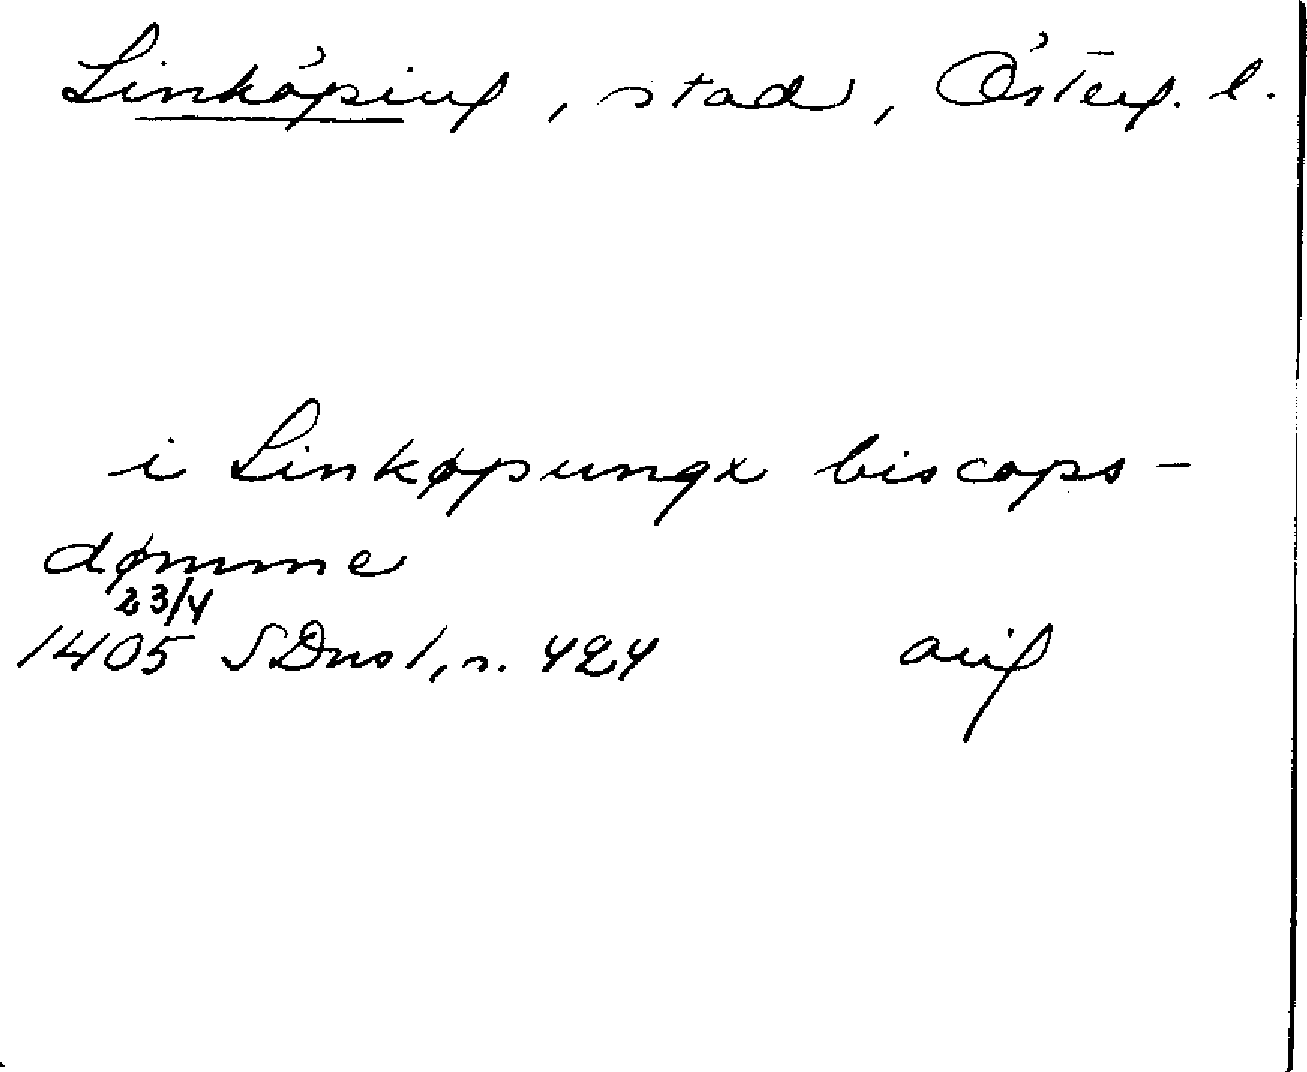 Linköping, stad, Österg. l.
i Linkøpungx biscops-
dømme
23/4
1405 SDns 1, n. 424 orig